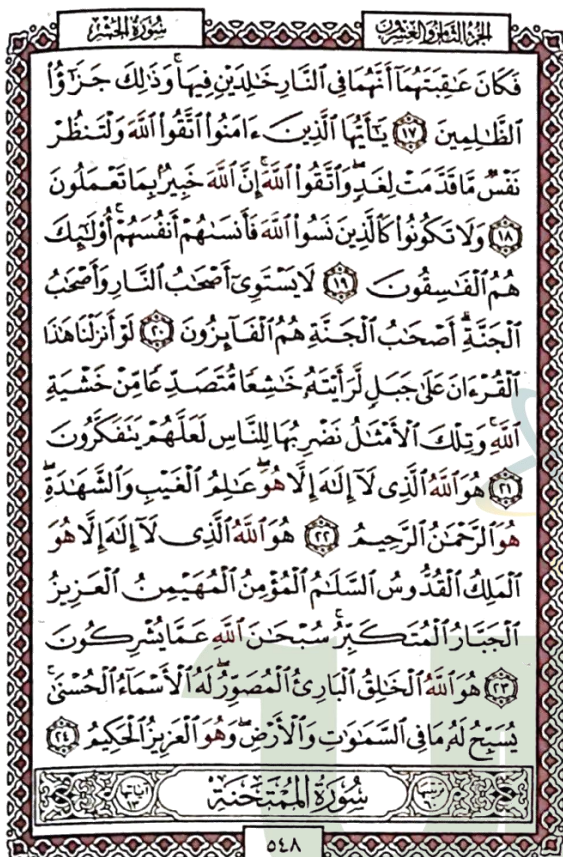 سُورَةُ الحَشْرِ
الجُزْءُ الثَّامِنُ وَالعِشْرُونَ
فَكَانَ عَٰقِبَتَهُمَآ أَنَّهُمَا فِى ٱلنَّارِ خَٰلِدَيْنِ فِيهَا ۚ وَذَٰلِكَ جَزَٰٓؤُا۟
ٱلظَّٰلِمِينَ ﴿١٧﴾ يَٰٓأَيُّهَا ٱلَّذِينَ ءَامَنُوا۟ ٱتَّقُوا۟ ٱللَّهَ وَلْتَنظُرْ
نَفْسٌ مَّا قَدَّمَتْ لِغَدٍ ۖ وَٱتَّقُوا۟ ٱللَّهَ ۚ إِنَّ ٱللَّهَ خَبِيرٌۢ بِمَا تَعْمَلُونَ
﴿١٨﴾ وَلَا تَكُونُوا۟ كَٱلَّذِينَ نَسُوا۟ ٱللَّهَ فَأَنسَىٰهُمْ أَنفُسَهُمْ ۚ أُو۟لَٰٓئِكَ
هُمُ ٱلْفَٰسِقُونَ ﴿١٩﴾ لَا يَسْتَوِىٓ أَصْحَٰبُ ٱلنَّارِ وَأَصْحَٰبُ
ٱلْجَنَّةِ ۚ أَصْحَٰبُ ٱلْجَنَّةِ هُمُ ٱلْفَآئِزُونَ ﴿٢٠﴾ لَوْ أَنزَلْنَا هَٰذَا
ٱلْقُرْءَانَ عَلَىٰ جَبَلٍ لَّرَأَيْتَهُۥ خَٰشِعًا مُّتَصَدِّعًا مِّنْ خَشْيَةِ
ٱللَّهِ ۚ وَتِلْكَ ٱلْأَمْثَٰلُ نَضْرِبُهَا لِلنَّاسِ لَعَلَّهُمْ يَتَفَكَّرُونَ
﴿٢١﴾ هُوَ ٱللَّهُ ٱلَّذِى لَآ إِلَٰهَ إِلَّا هُوَ ۖ عَٰلِمُ ٱلْغَيْبِ وَٱلشَّهَٰدَةِ ۖ
هُوَ ٱلرَّحْمَٰنُ ٱلرَّحِيمُ ﴿٢٢﴾ هُوَ ٱللَّهُ ٱلَّذِى لَآ إِلَٰهَ إِلَّا هُوَ
ٱلْمَلِكُ ٱلْقُدُّوسُ ٱلسَّلَٰمُ ٱلْمُؤْمِنُ ٱلْمُهَيْمِنُ ٱلْعَزِيزُ
ٱلْجَبَّارُ ٱلْمُتَكَبِّرُ ۚ سُبْحَٰنَ ٱللَّهِ عَمَّا يُشْرِكُونَ
﴿٢٣﴾ هُوَ ٱللَّهُ ٱلْخَٰلِقُ ٱلْبَارِئُ ٱلْمُصَوِّرُ ۖ لَهُ ٱلْأَسْمَآءُ ٱلْحُسْنَىٰ ۚ
يُسَبِّحُ لَهُۥ مَا فِى ٱلسَّمَٰوَٰتِ وَٱلْأَرْضِ ۖ وَهُوَ ٱلْعَزِيزُ ٱلْحَكِيمُ ﴿٢٤﴾
ترتيبها ٦٠ سُورَةُ المُمْتَحَنَةِ آياتها ١٣
٥٤٨